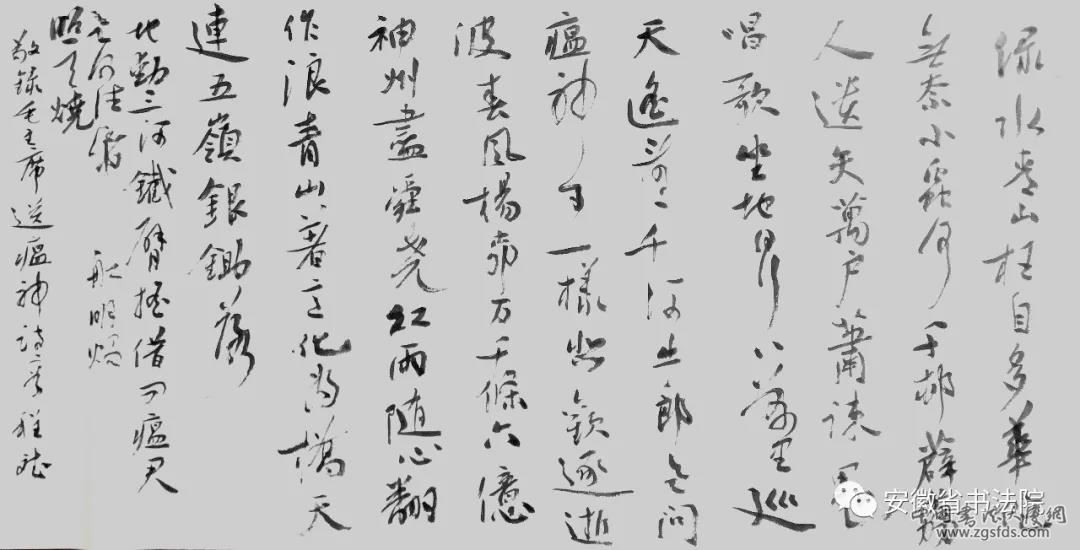 绿水青山枉自多華
無奈小蟲何千邨薜
人遗矢萬户蕭疎鬼
唱歌坐地日行八萬里巡
天遥看一千河牛郎欲问
瘟神事一樣悲歡逐逝
波春風楊柳万千條六億
神州盡舜尧红雨随心翻
作浪青山著意化為橋天
連五嶺銀鋤落
地動三河鐵臂摇借问瘟君
欲何往紙船明燭
照天燒
敬錄毛主席送瘟神詩二首
安徽省书法院
www.zgsfds.com